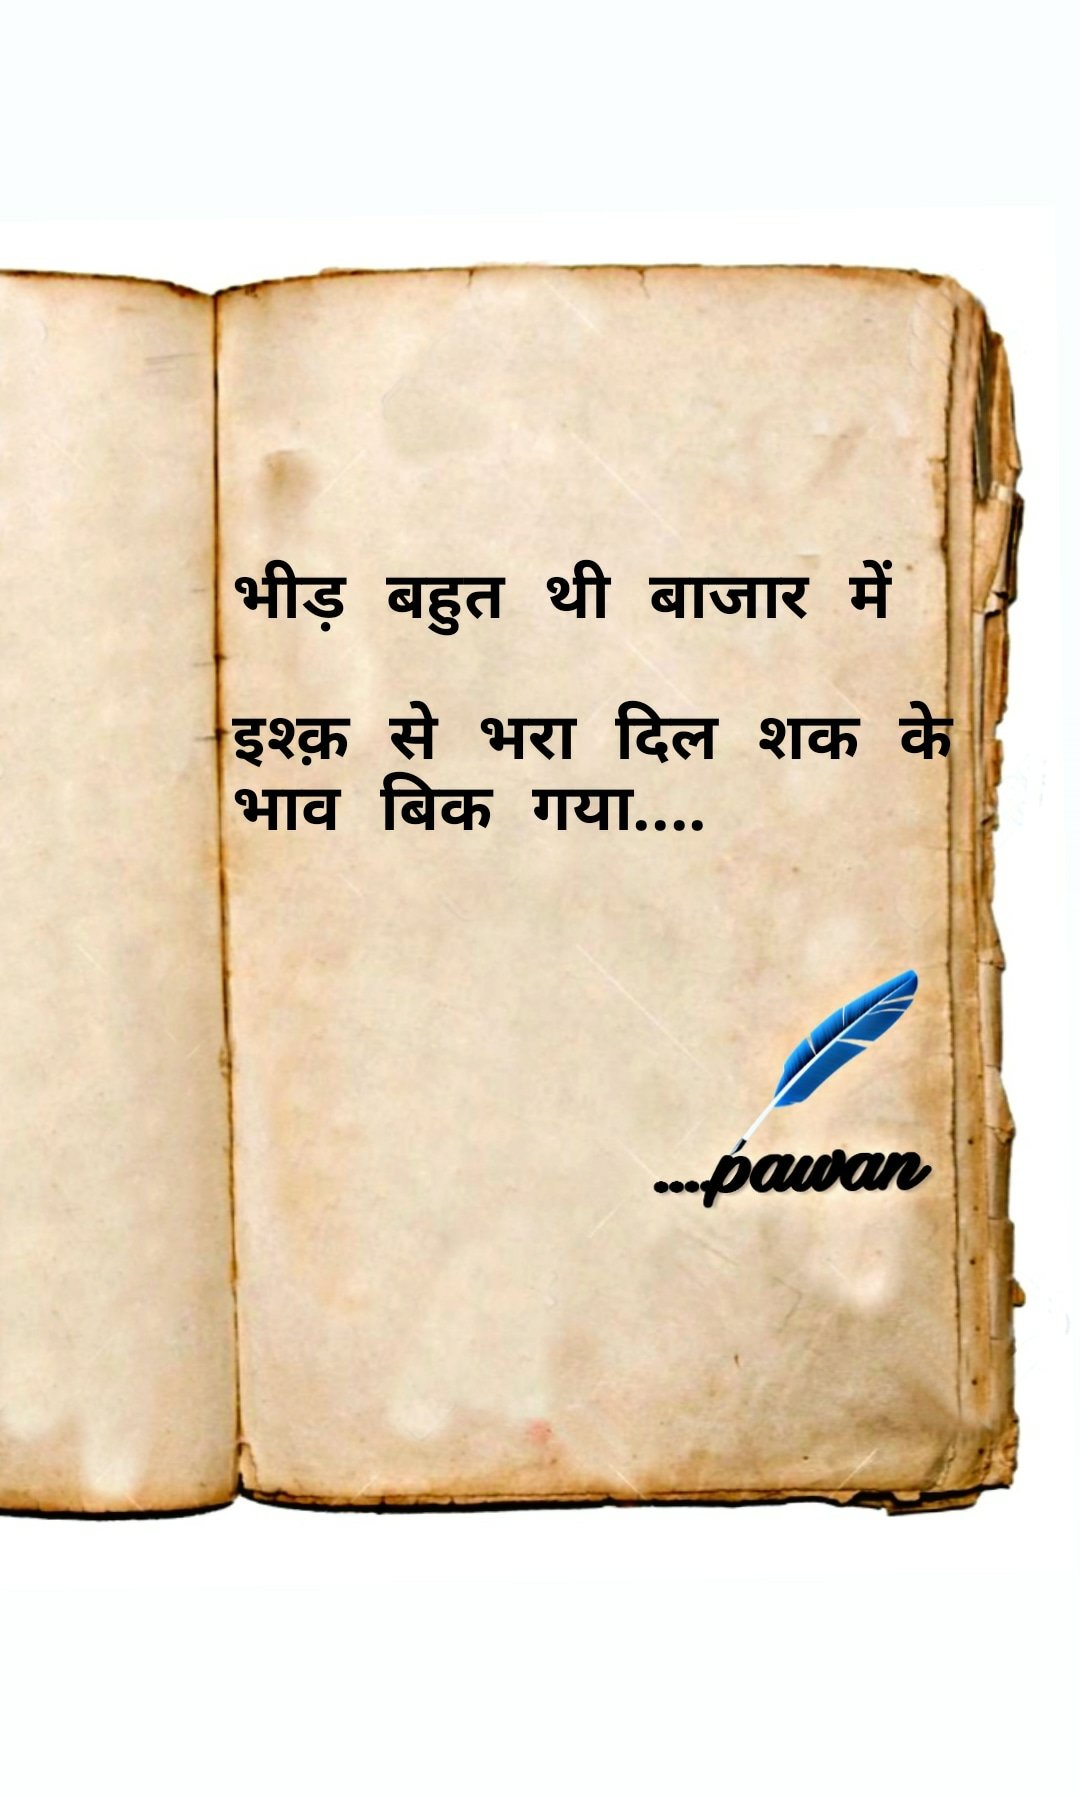 भीड़ बहुत थी बाजार में
इश्क़ से भरा दिल शक के
भाव बिक गया....
....pawan